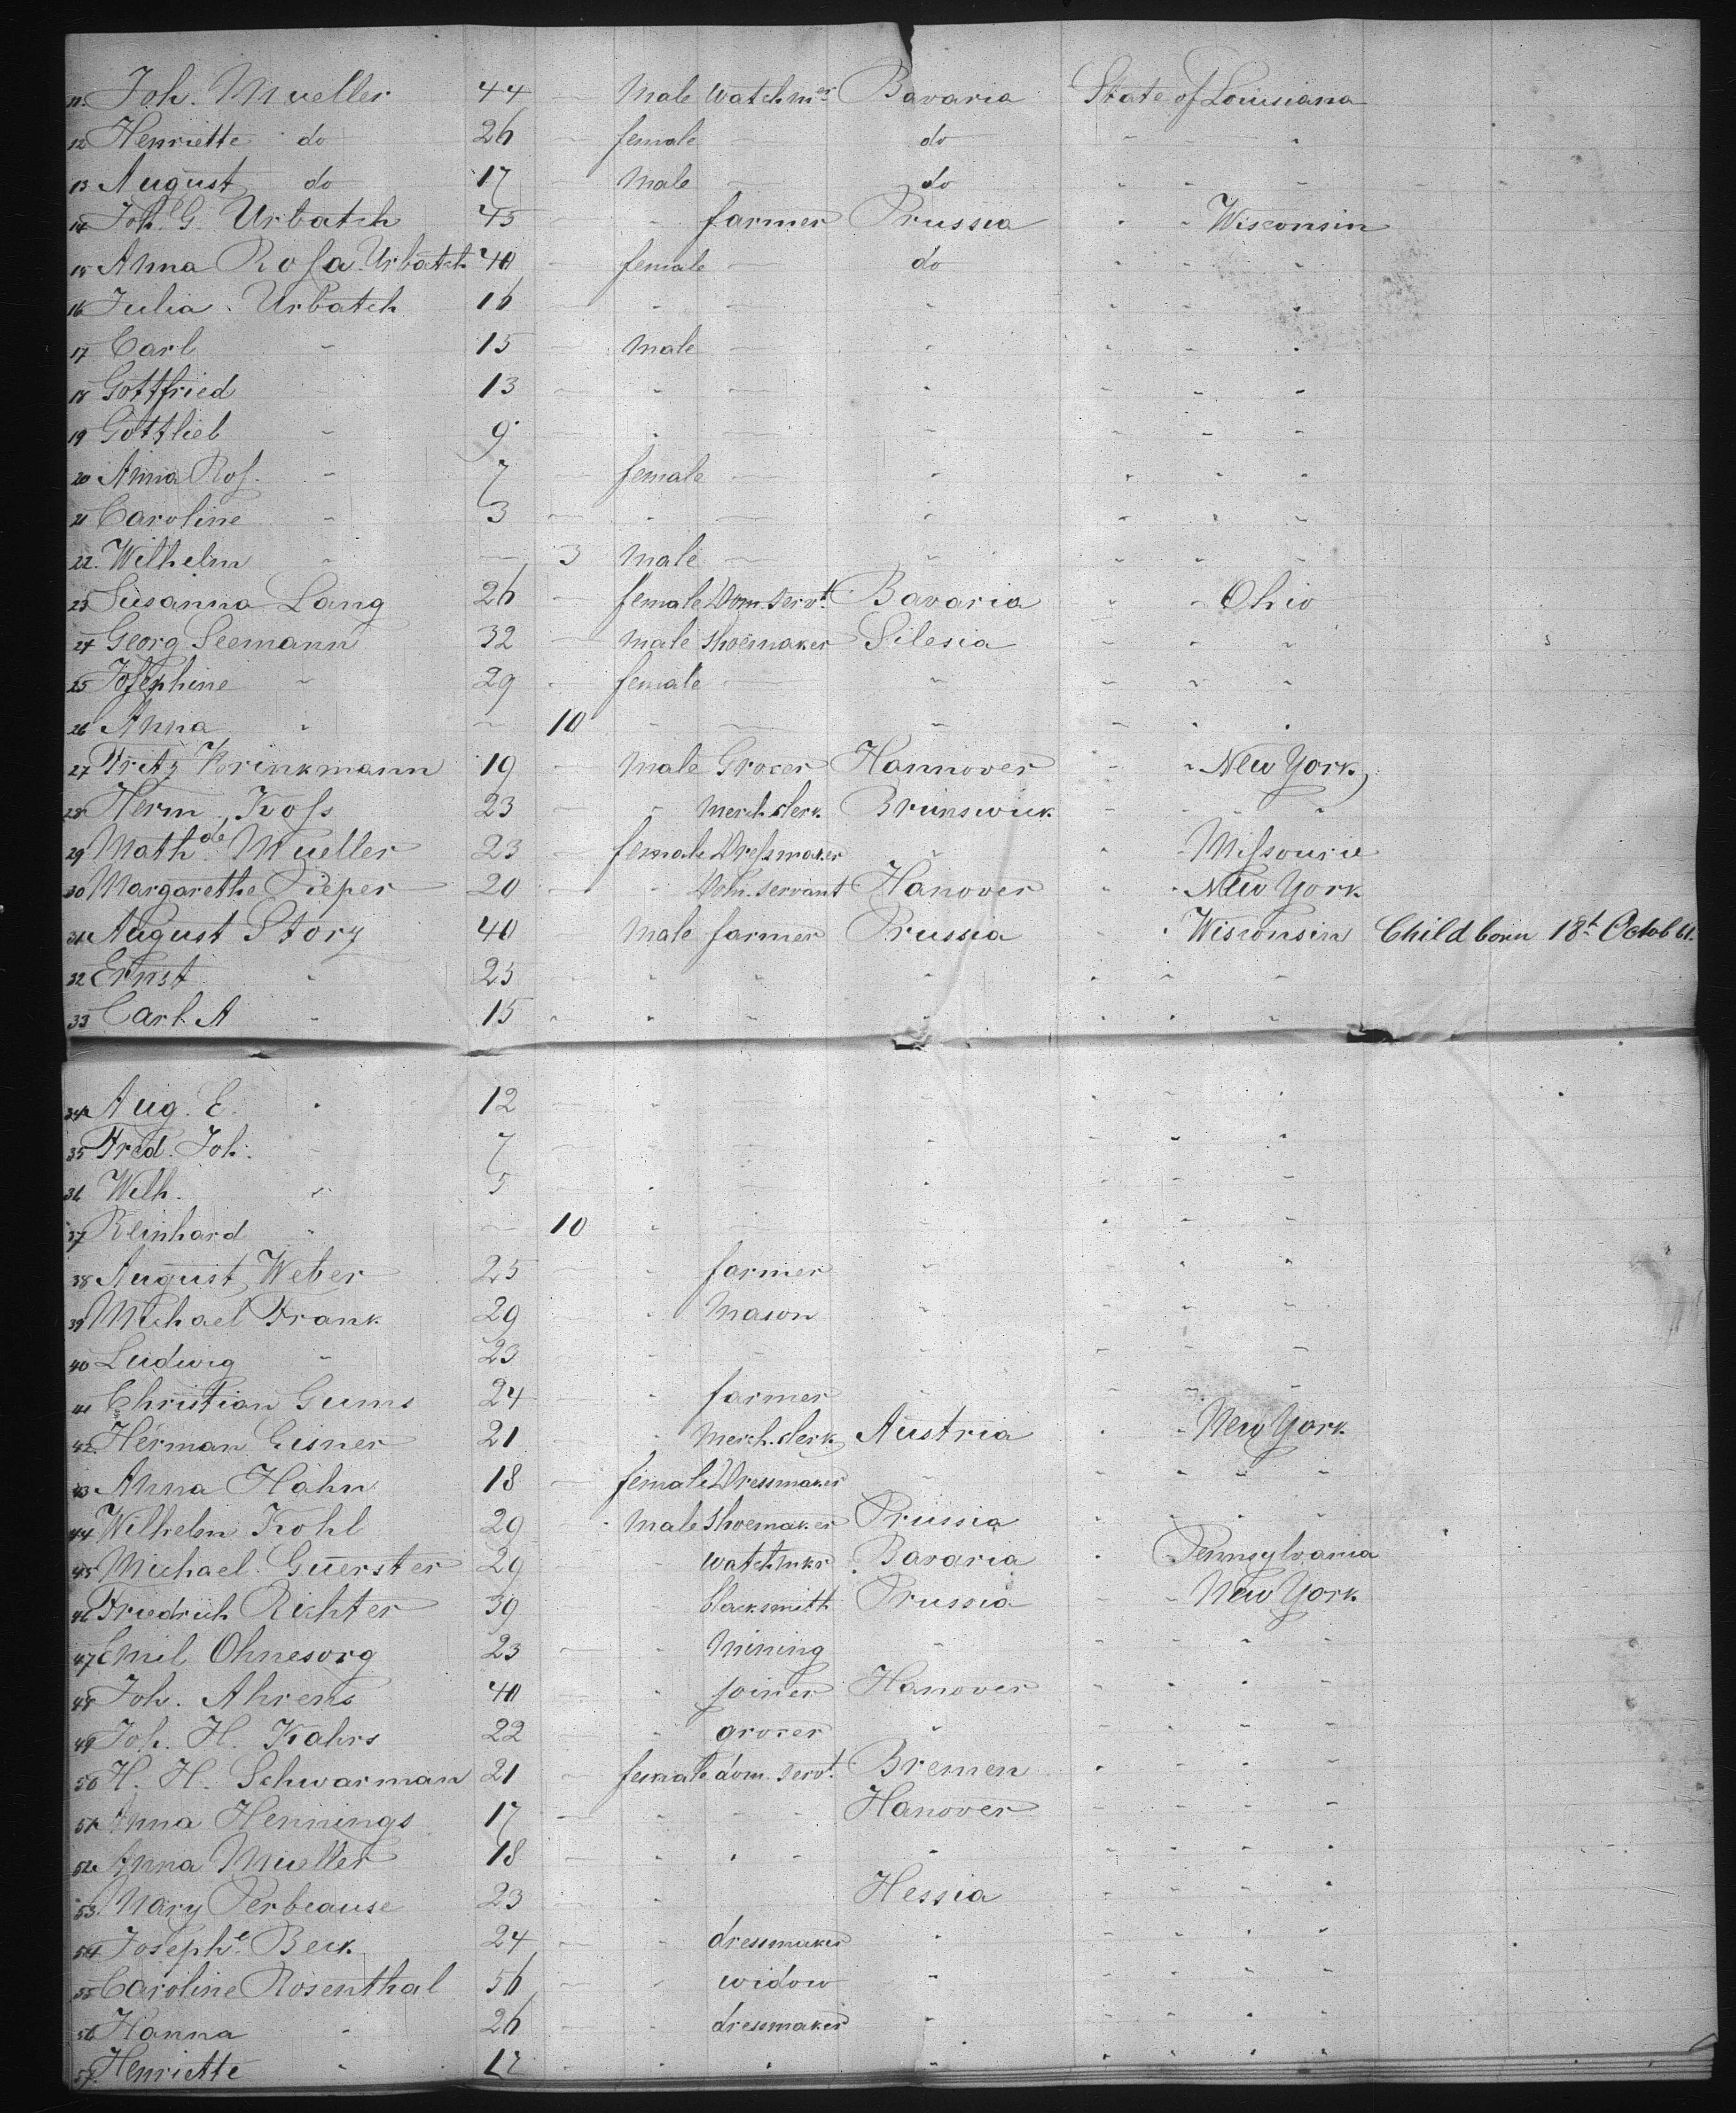 11. Joh. Mueller 44 — Male Watchmer Bavaria State of Louisiana
12 Henriette do 26 — female — do " "
13 August do 17 — Male — do " " "
14 Johl G. Urbatch 45 — " farmer Prussia " " Wisconsin
15 Anna Rosa Urbatch 40 — female — do " " "
16 Julia Urbatch 16 — " — " " " "
17 Carl " 15 — Male — " " " "
18 Gottfried 13 — " — " " " "
19 Gottlieb " 9 — " — " " " "
20 Anna Ros. " 7 — female — " " " "
21 Caroline " 3 — " — " " " "
22. Wilhelm " — 3 Male — " " " "
23 Susanna Lang 26 — female Dom. Servt. Bavaria " " Ohio
24 Georg Seemann 32 — Male Shoemaker Silesia " " "
25 Josephine " 29 — female — " " " "
26 Anna " — 10 " — " " " "
27 Fritz Brinkmann 19 — Male Grocer Hannover " " New York,
28 Herm. Koss 23 — " Merch. Clerk Brunswick " " "
29 Mathde Mueller 23 — female Dressmaker " " " Missourie
30 Margarethe Pieper 20 — " Dom. Servant Hanover " " New York
31 August Story 40 — Male farmer Prussia " " Wisconsin Child born 18t. Octob 61.
32 Ernst " 25 " " " " " "
33 Carl A " 15 " " " " " " "
34 Aug. E. " 12 — " " " "
35 Fred. Joh. " 7 — " " " "
36 Wilh. " 5 " — " " " "
37 Reinhard " — 10 " — " " " "
38 August Weber 25 — " farmer " " " "
39 Michael Frank 29 — " Mason " " " "
40 Ludwig " 23 " " " " " "
41 Christian Gums 24 — " farmer " " " "
42 Herman Eisner 21 " Merch. Clerk Austria " " New York
43 Anna Hahn 18 — female Dressmaker " " " " "
44 Wilhelm Kohl 29 — Male Shoemaker Prussia " " " "
45 Michael Guerster 29 " watchmkr Bavaria " Pennsylvania
46 Friedrich Richter 39 " blacksmith Prussia " " New York
47 Emil Ohnesorg 23 — " Mining " " " " "
48 Joh. Ahrens 40 — " joiner Hanover " " " "
49 Joh. H. Kahrs 22 — " grocer " " " " "
50 H. H. Schwarman 21 — female dom. Servt. Bremen " " " "
51 Anna Hennings 17 — " " " Hanover " " " "
52 Anna Mueller 18 — " " " " " " " "
53. Mary Perbeause 23 — " Hessia " " " "
54 Josephe Beck 24 — " dressmaker " " " " "
55 Caroline Rosenthal 56 — " widow " " " " "
56 Hanna " 26 — " dressmaker " " " " "
57. Henriette " 17 " " " " " " " "